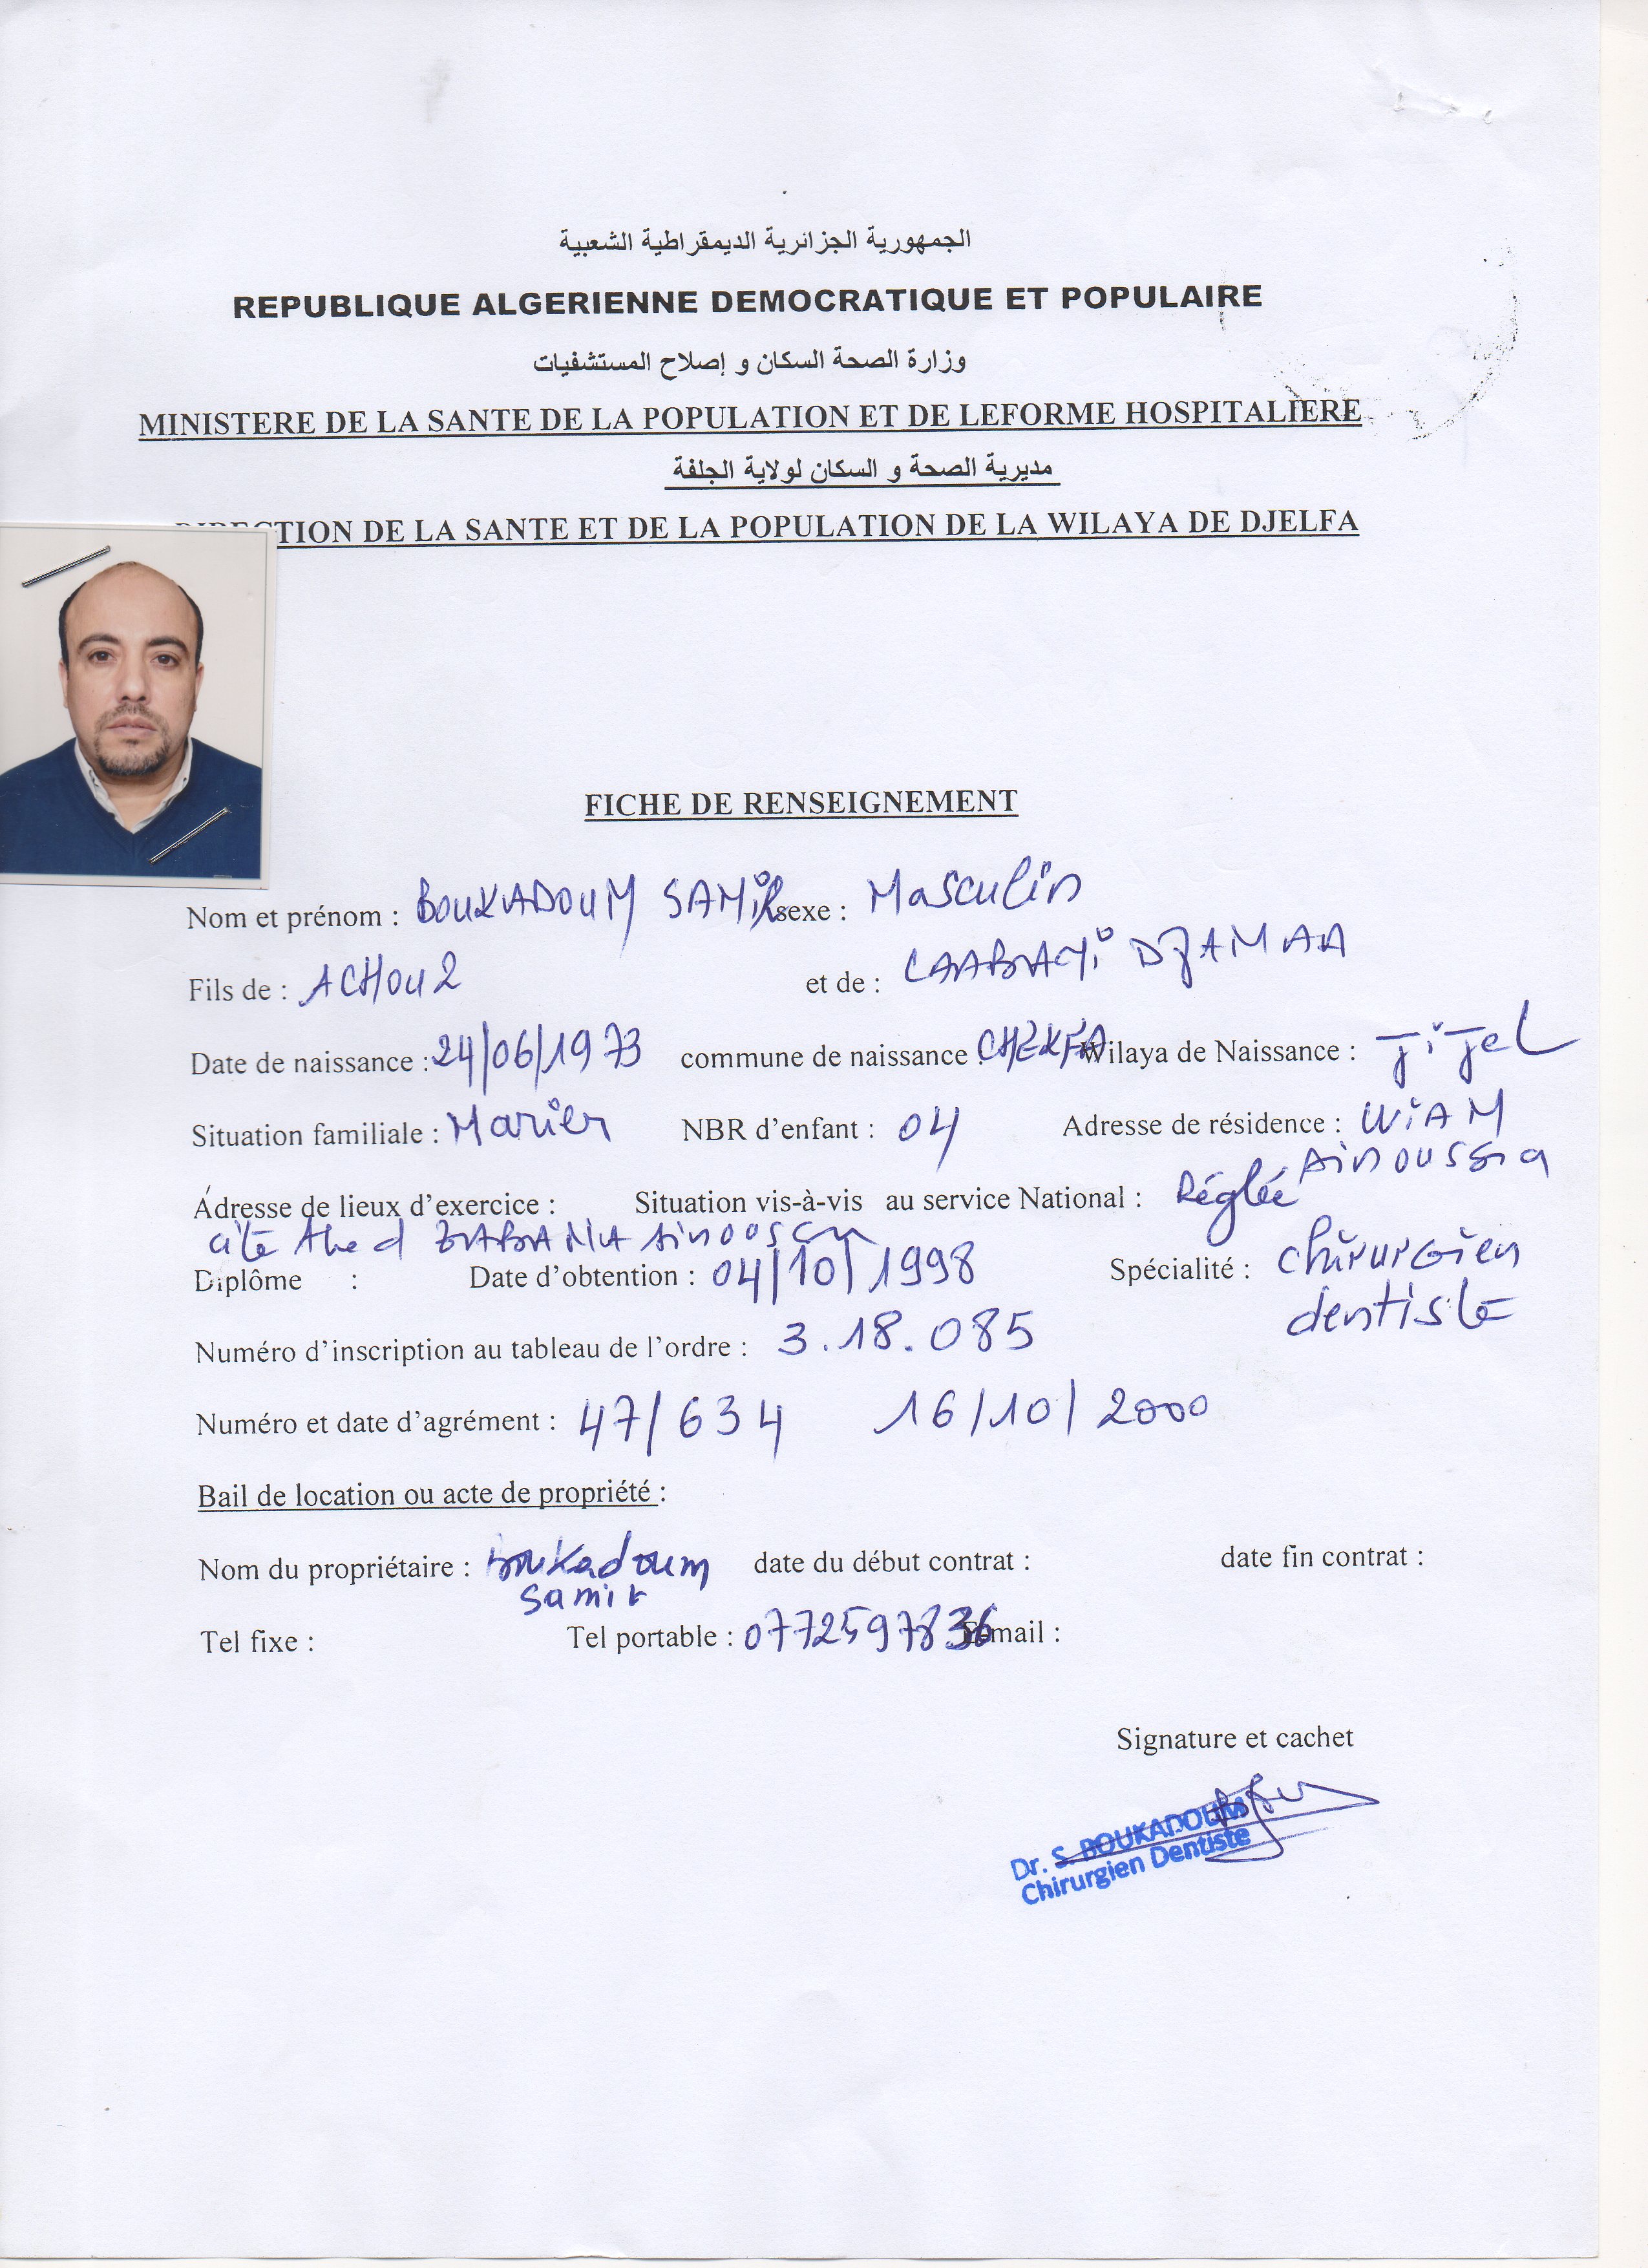 الجمهورية الجزائرية الديمقراطية الشعبية
REPUBLIQUE ALGERIENNE DEMOCRATIQUE ET POPULAIRE
وزارة الصحة السكان و إصلاح المستشفيات
MINISTERE DE LA SANTE DE LA POPULATION ET DE LEFORME HOSPITALIERE
مديرية الصحة و السكان لولاية الجلفة
DIRECTION DE LA SANTE ET DE LA POPULATION DE LA WILAYA DE DJELFA
FICHE DE RENSEIGNEMENT
Nom et prénom : BOUKADOUM SAMiR sexe : Masculin
Fils de : ACHOUR et de : DJAMAA
Date de naissance : 24/06/1973 commune de naissance : CHEKFA Wilaya de Naissance : Jijel
Situation familiale : Marier NBR d'enfant : 04 Adresse de résidence : WiAM
Ainoussra
Adresse de lieux d'exercice : Situation vis-à-vis au service National : Réglée
cité ZABANA
Diplôme : Date d'obtention : 04/10/1998 Spécialité : chirurgien
dentiste
Numéro d'inscription au tableau de l'ordre : 3.18.085
Numéro et date d'agrément : 47/634 16/10/2000
Bail de location ou acte de propriété :
Nom du propriétaire : Boukadoum date du début contrat : date fin contrat :
Samir
Tel fixe : Tel portable : 0772597836 E-mail :
Signature et cachet
Dr. S. BOUKADOUM
Chirurgien Dentiste